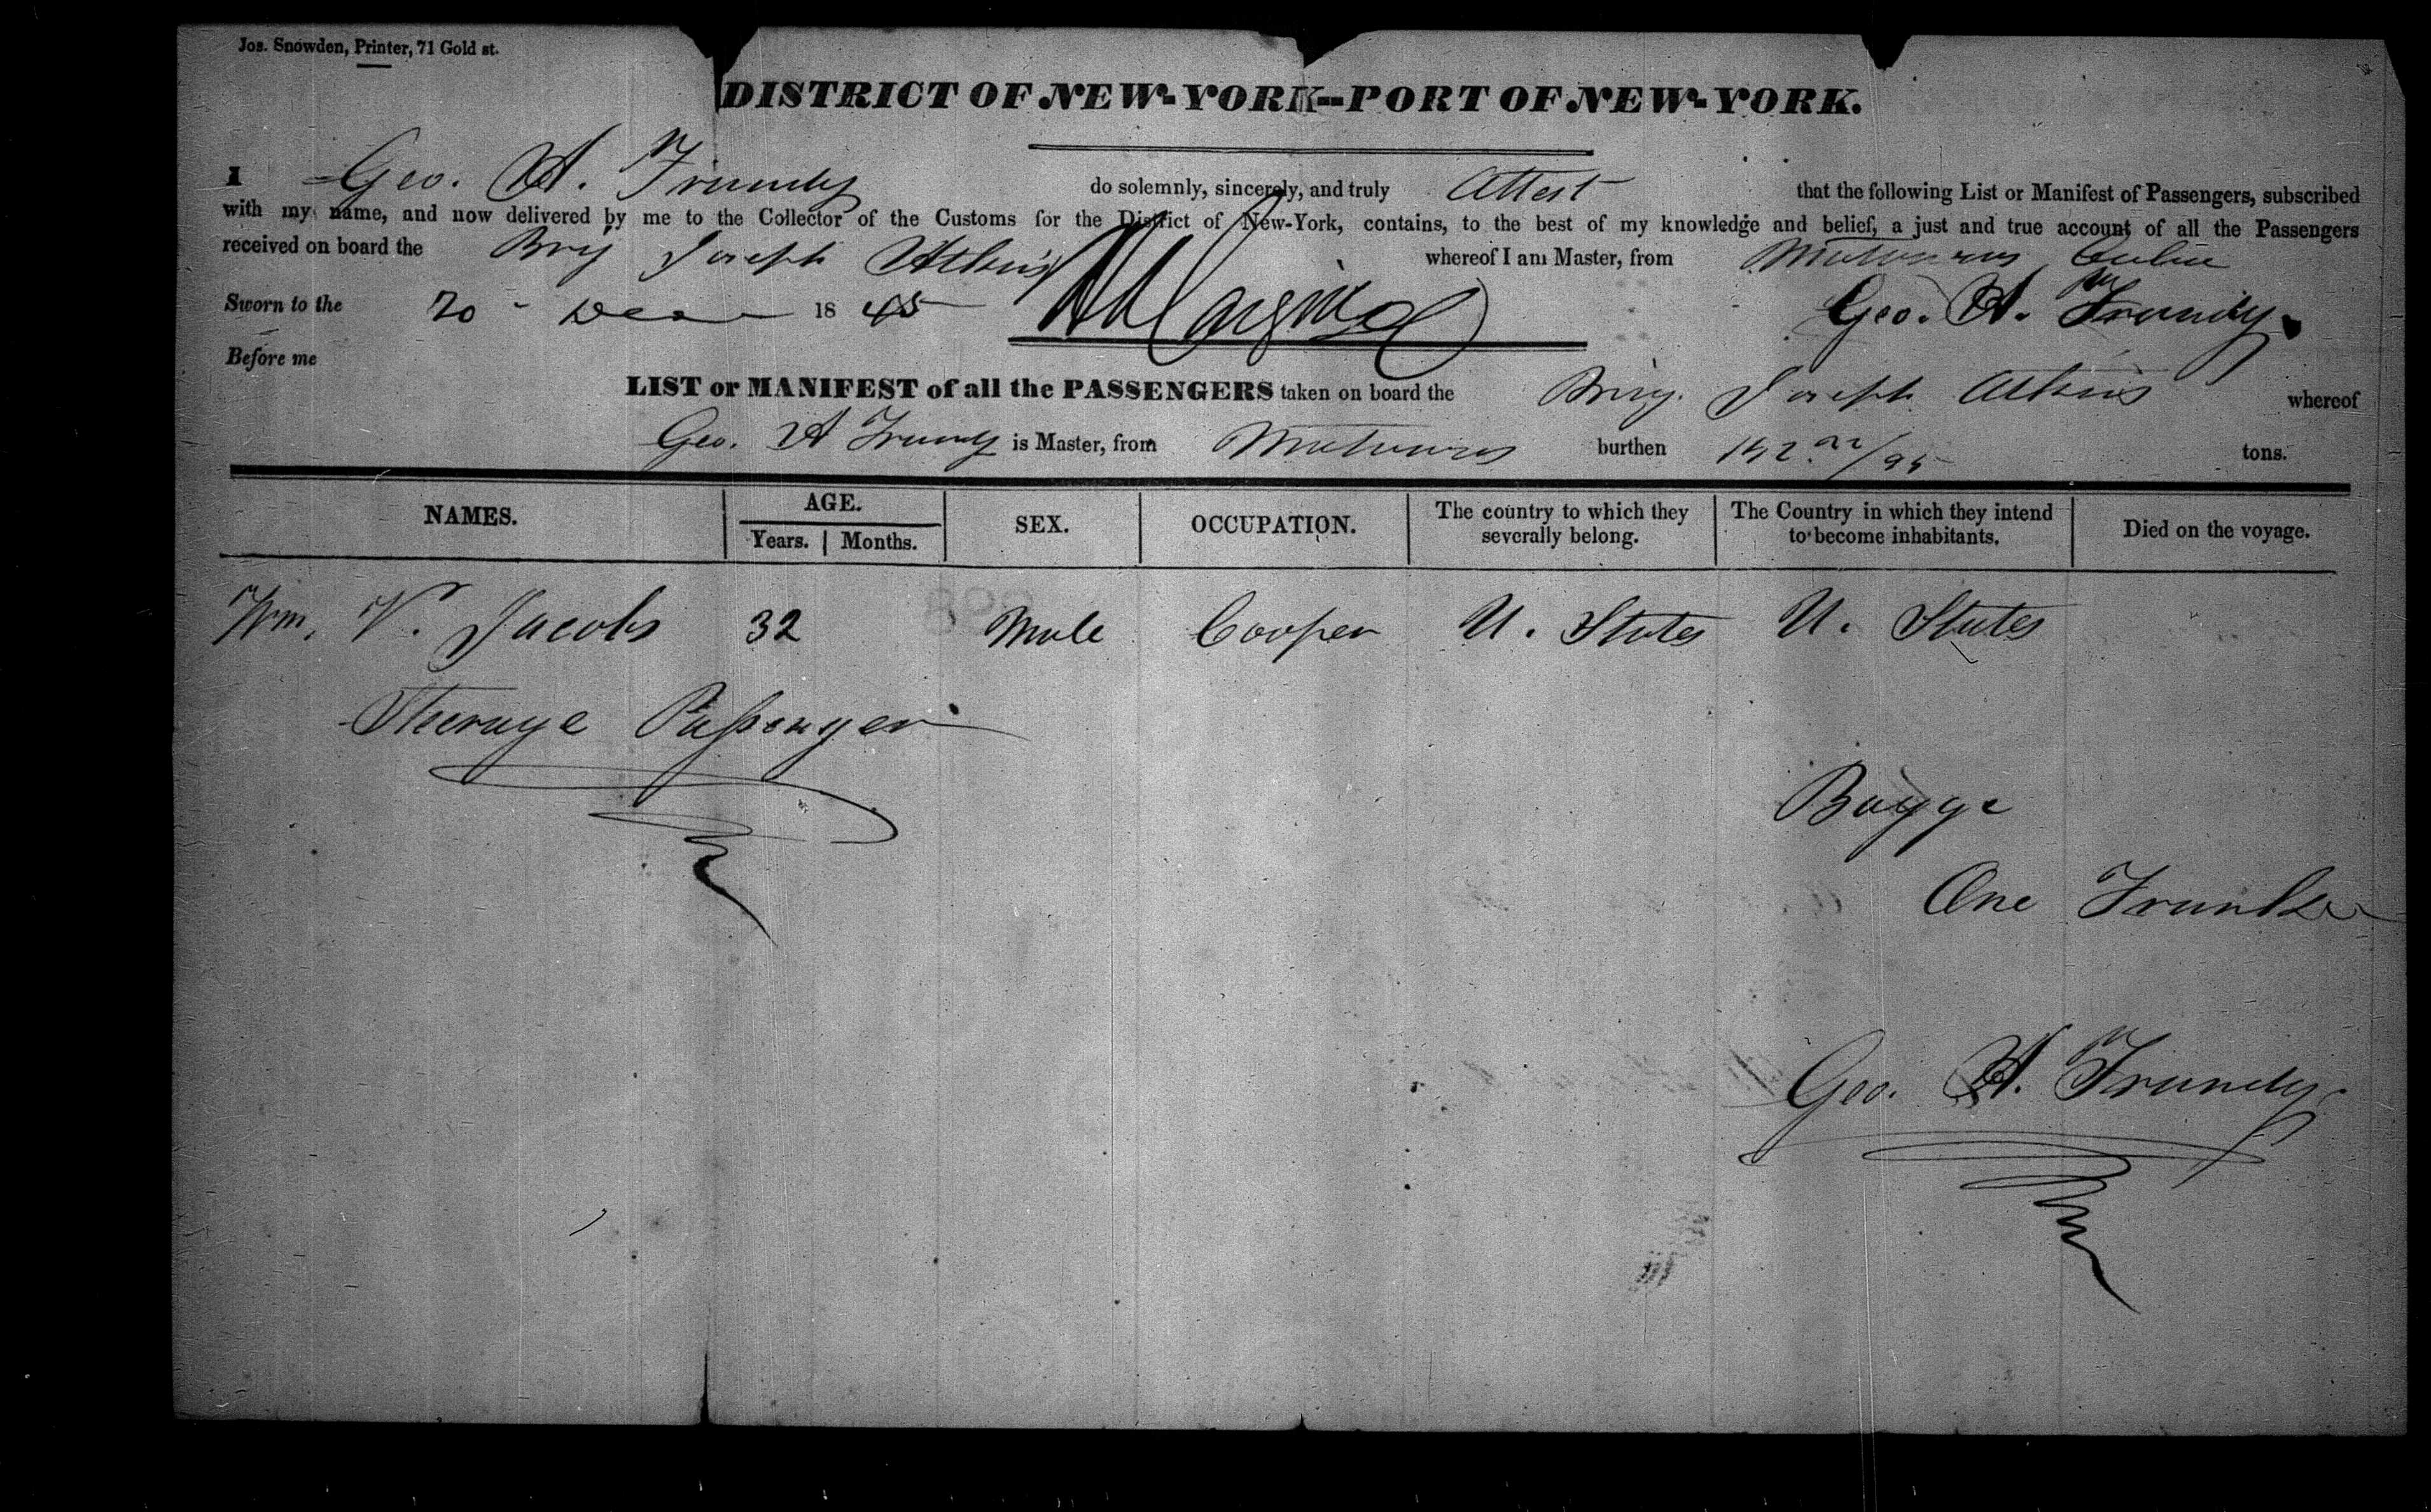 Jos. Snowden, Printer, 71 Gold st.
DISTRICT OF NEW-YORK--PORT OF NEW-YORK.
I Geo. A. Trundy do solemnly, sincerely, and truly Attest that the following List or Manifest of Passengers, subscribed
with my name, and now delivered by me to the Collector of the Customs for the District of New-York, contains, to the best of my knowledge and belief, a just and true account of all the Passengers
received on board the Brig Joseph Atkins whereof I am Master, from Matanzas Cuba
Sworn to the 20 Dec 1845 Geo. A. Trundy
Before me
LIST or MANIFEST of all the PASSENGERS taken on board the Brig. Joseph Atkins whereof
Geo. A Trundy is Master, from Matanzas burthen tons.
NAMES. AGE. Years. Months. SEX. OCCUPATION. The country to which they severally belong. The Country in which they intend to become inhabitants. Died on the voyage.
Wm. V. Jacobs 32 Male Cooper U. States U. States
Steerage Passenger
Bagge
One Trunk
Geo. A. Trundy